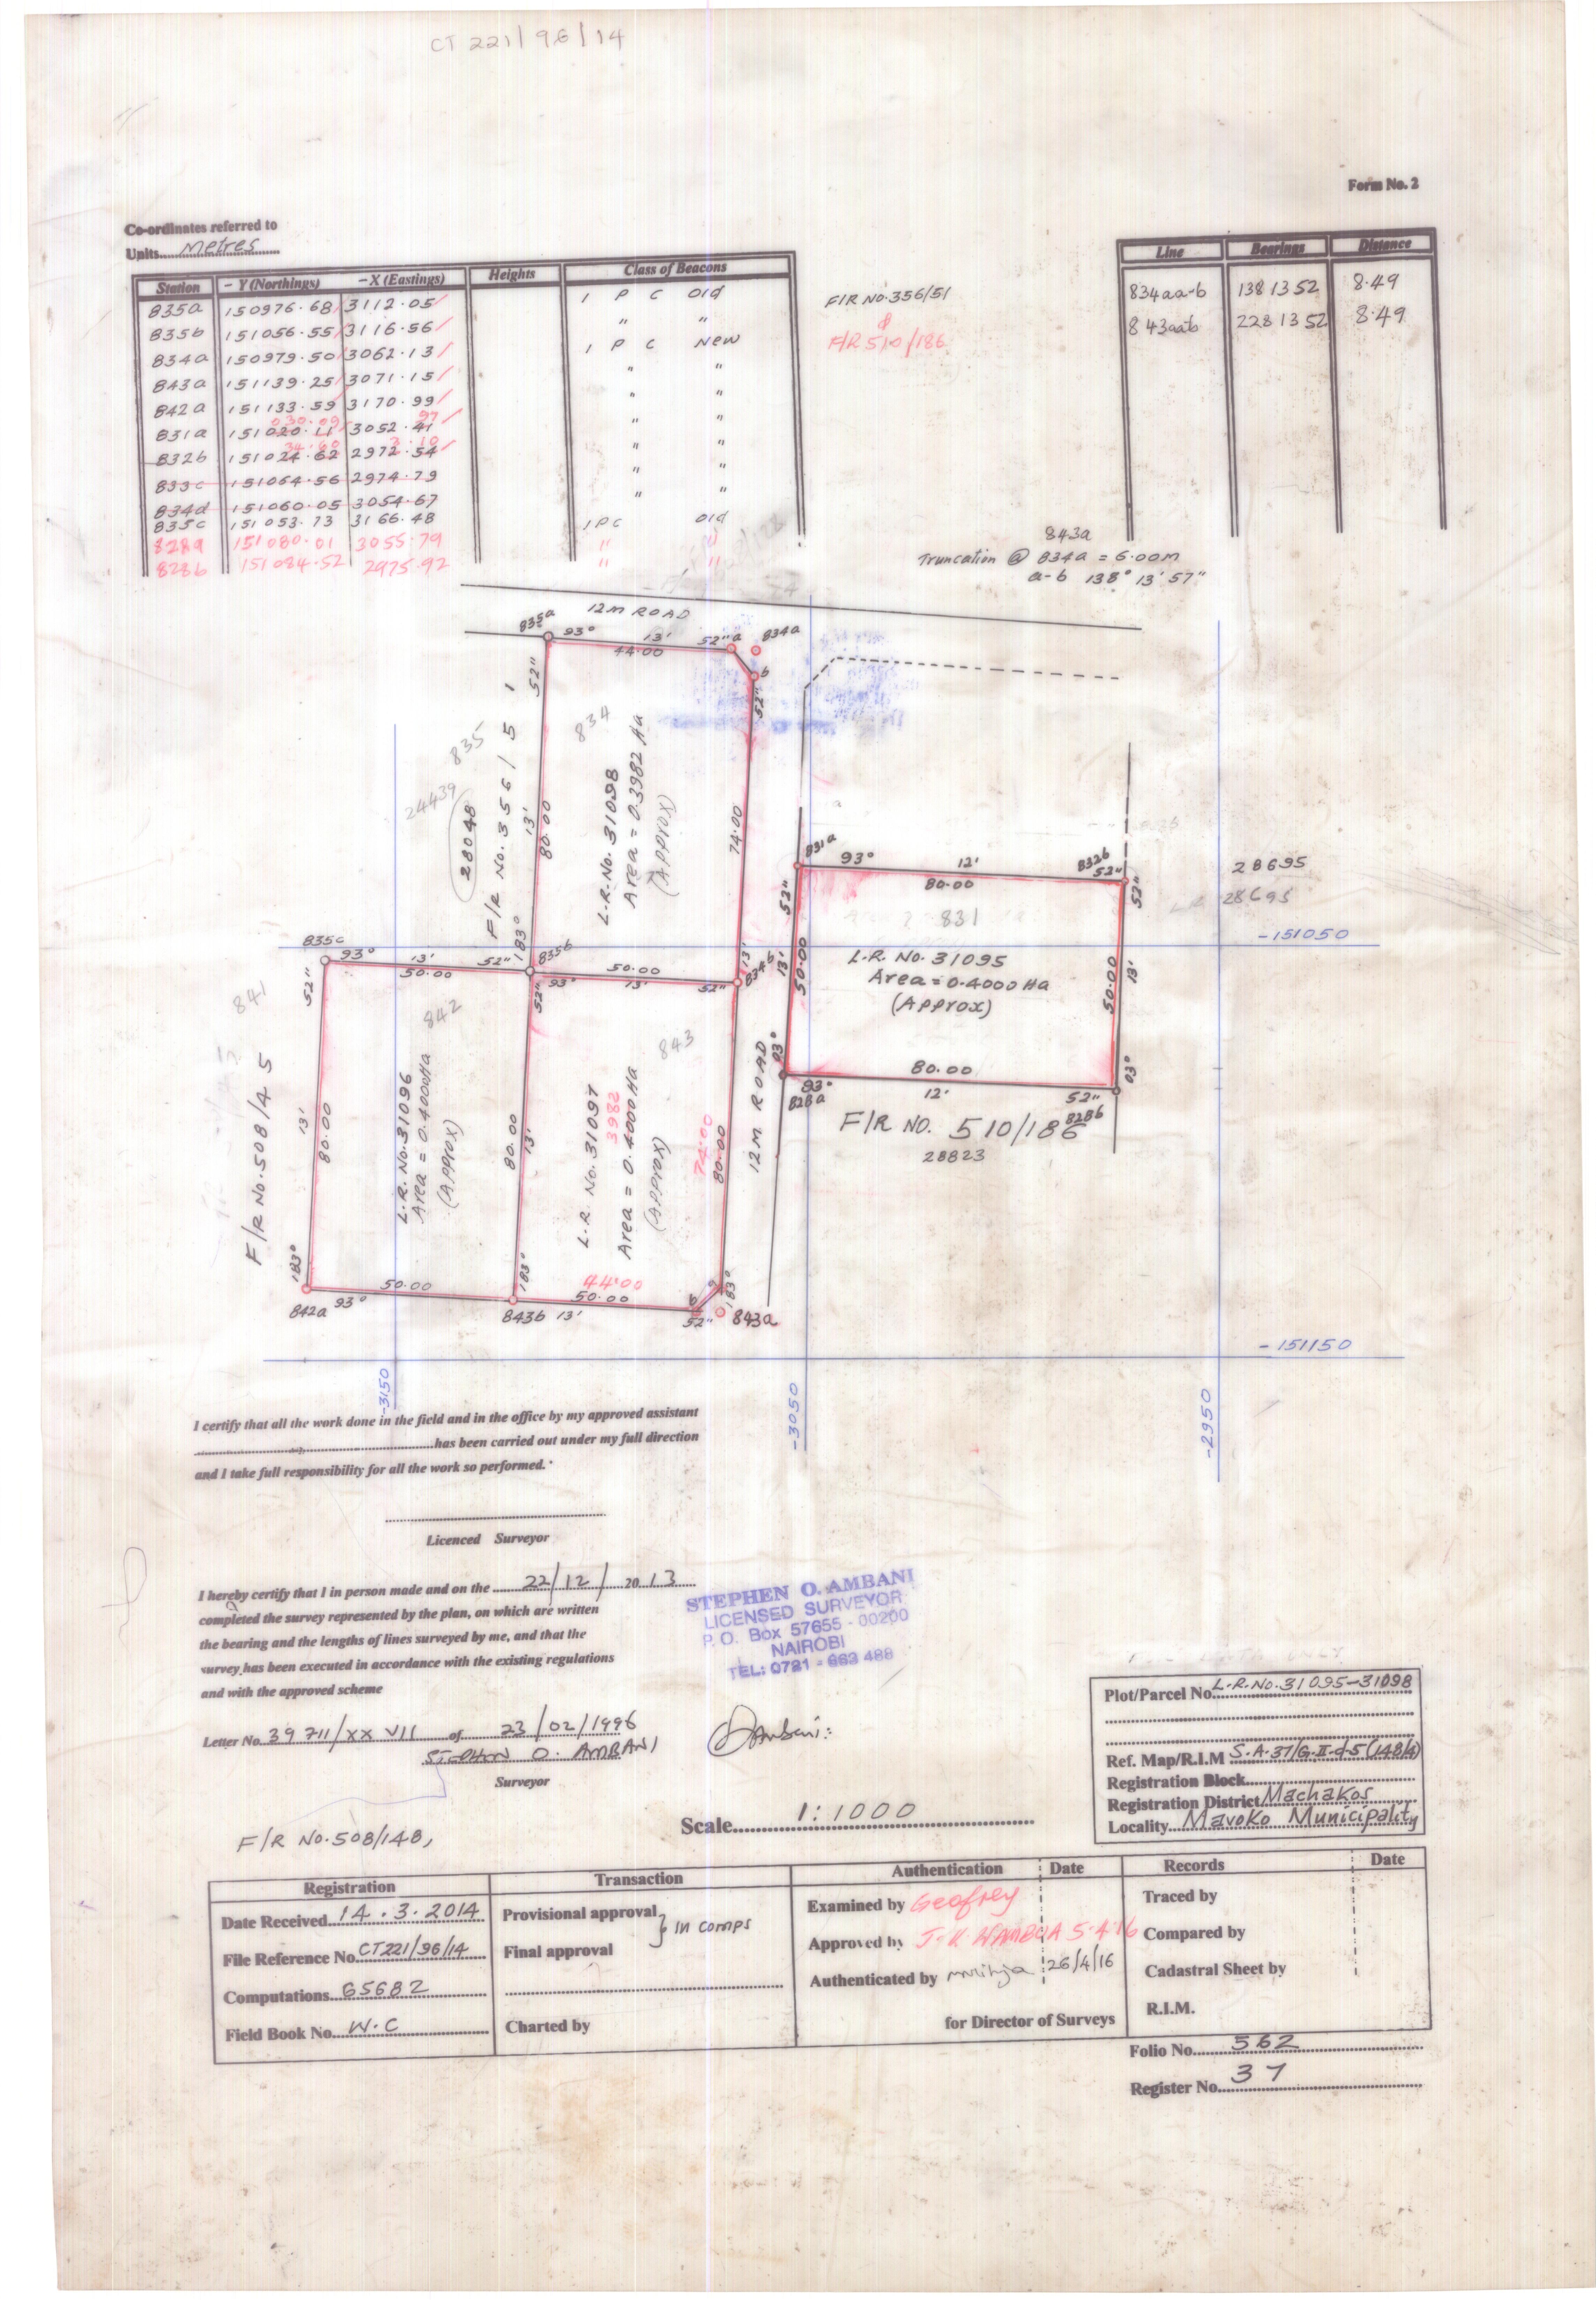 CT 221/96/14
Form No. 2
Co-ordinates referred to
Units Metres
Station - Y (Northings) - X (Eastings) Heights Class of Beacons
835a 150976.68 3112.05 1 P C Old
835b 151056.55 3116.56 " "
834a 150979.50 3062.13 1 P C New
843a 151139.25 3071.15 " "
842a 151133.59 3170.99 " "
030.09 97
831a 151020.11 3052.41 " "
34.60 3.10
832b 151024.62 2972.54 " "
833c 151064.56 2974.79 " "
834d 151060.05 3054.67 " "
835c 151053.73 3166.48 1PC Old
828a 151080.01 3055.79 " "
828b 151084.52 2975.92 " "
F/R No.356/51
&
F/R 510/186
Line Bearings Distance
834aa-b 138 13 52 8.49
843aab 228 13 52 8.49
843a
Truncation @ 834a = 6.00m
a-b 138° 13' 57"
12M ROAD
835a 93° 13' 52" a 834a
44.00
b
52"
52"
834
835
24439
28048
F/R No. 356/51
13'
80.00
183°
L.R. No. 31098
Area = 0.3982 Ha
(Approx)
74.00
13'
831a 93° 12' 832b
80.00 52"
28695
28695
52"
52"
831
-151050
L.R. No. 31095
Area = 0.4000 Ha
(Approx)
50.00
13'
50.00
13'
835c 93° 13' 52" 835b
50.00
93° 50.00 13' 52" 834b
52"
52"
841
842
843
12M ROAD
03°
80.00
93° 12' 52"
03°
828a 828b
F/R NO. 510/186
28823
F/R No. 508/45
13'
80.00
183°
L.R. No. 31096
Area = 0.4000Ha
(Approx)
80.00
13'
183°
L.R. No. 31097
3982
Area = 0.4000 Ha
(Approx)
74.00
80.00
183°
44.00
842a 93° 50.00 843b 13' 50.00 52" b 843a
-151150
-3150
-3050
-2950
I certify that all the work done in the field and in the office by my approved assistant
has been carried out under my full direction
and I take full responsibility for all the work so performed.
Licenced Surveyor
I hereby certify that I in person made and on the 22/12/ 2013
completed the survey represented by the plan, on which are written
the bearing and the lengths of lines surveyed by me, and that the
survey has been executed in accordance with the existing regulations
and with the approved scheme
Letter No. 39711/XXVII of 23/02/1996
STEPHEN O. AMBANI
Surveyor
STEPHEN O. AMBANI
LICENSED SURVEYOR
P. O. Box 57655 - 00200
NAIROBI
TEL: 0721 - 663 488
Ambani
Plot/Parcel No. L.R.No.31095-31098
Ref. Map/R.I.M S.A.37/G.II.d.5(148/4)
Registration Block
Registration District Machakos
Locality Mavoko Municipality
Scale 1:1000
F/R No.508/148,
Registration
Date Received 14.3.2014
File Reference No. CT221/96/14
Computations 65682
Field Book No. W.C
Transaction
Provisional approval
Final approval
} in comps
Charted by
Authentication Date
Examined by Geofrey
Approved by J.K. WAMBUA 5.4.16
Authenticated by 26/4/16
for Director of Surveys
Records Date
Traced by
Compared by
Cadastral Sheet by
R.I.M.
Folio No. 562
Register No. 37